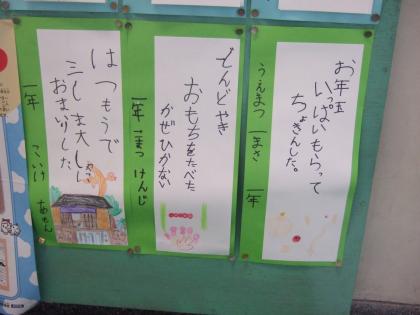 お年玉
いっぱいもらって
ちょきんした。
うえまつ 一まさ 一年
どんどやき
おもちをたべた
かぜひかない
一年 こまつ けんじ
はつもうで
三しま大しゃに
おまいりした。
一年 こいけ あもん